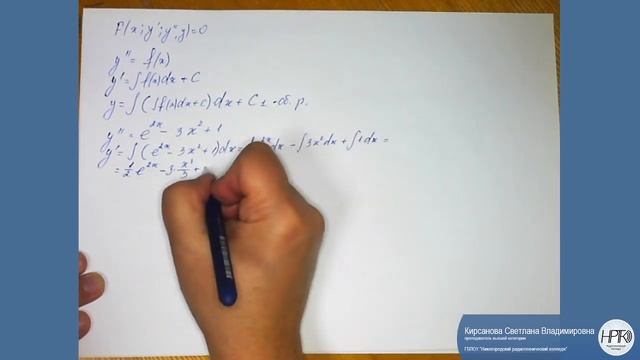 F(x; y'; y'', y) = 0
y'' = f(x)
y' = ∫f(x)dx + C
y = ∫(∫f(x)dx + C) dx + C₁ - об. р.
y'' = e^{2x} - 3x² + 1
y' = ∫(e^{2x} - 3x² + 1)dx = dx - ∫3x²dx + ∫1dx =
= 1/2 e^{2x} - 3 · x³/3 +
Кирсанова Светлана Владимировна
преподаватель высшей категории
ГБПОУ "Нижегородский радиотехнический колледж"
НРТК